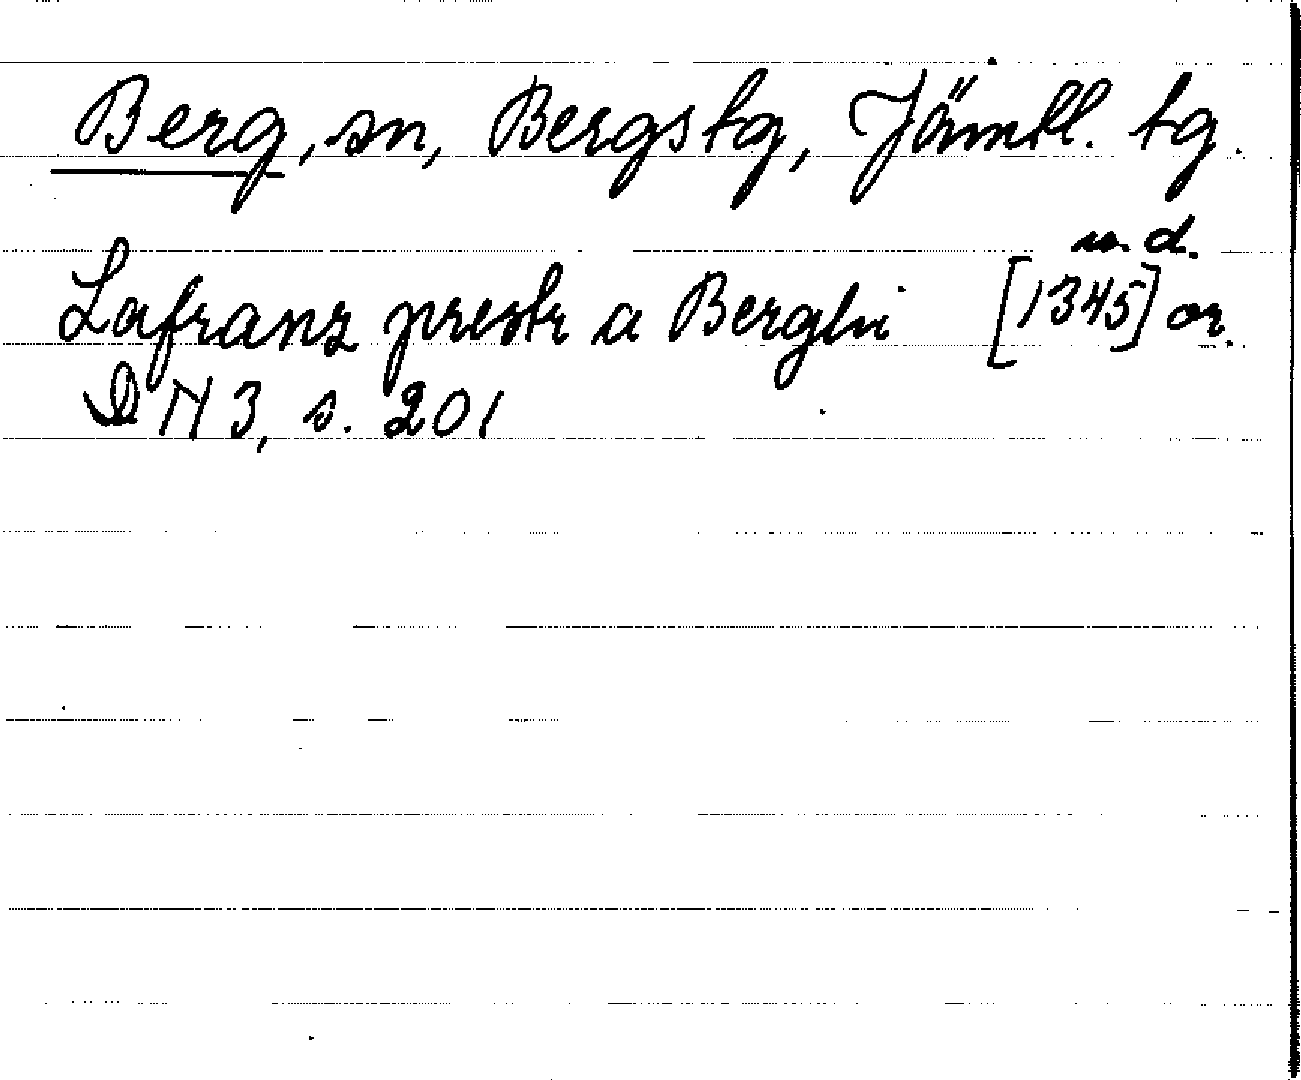 Berg, sn, Bergs tg, Jämtl. tg.
u. d.
Lafranz prestr a Berghi [1345] or.
DN 3, s. 201